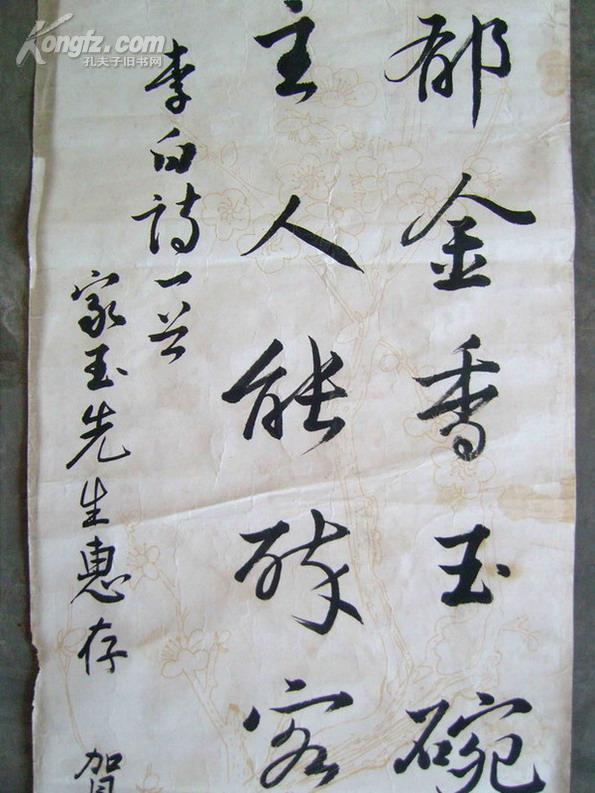 郁金香玉碗
主人能醉客
李白诗一首
家玉先生惠存 贺
Kongfz.com
孔夫子旧书网